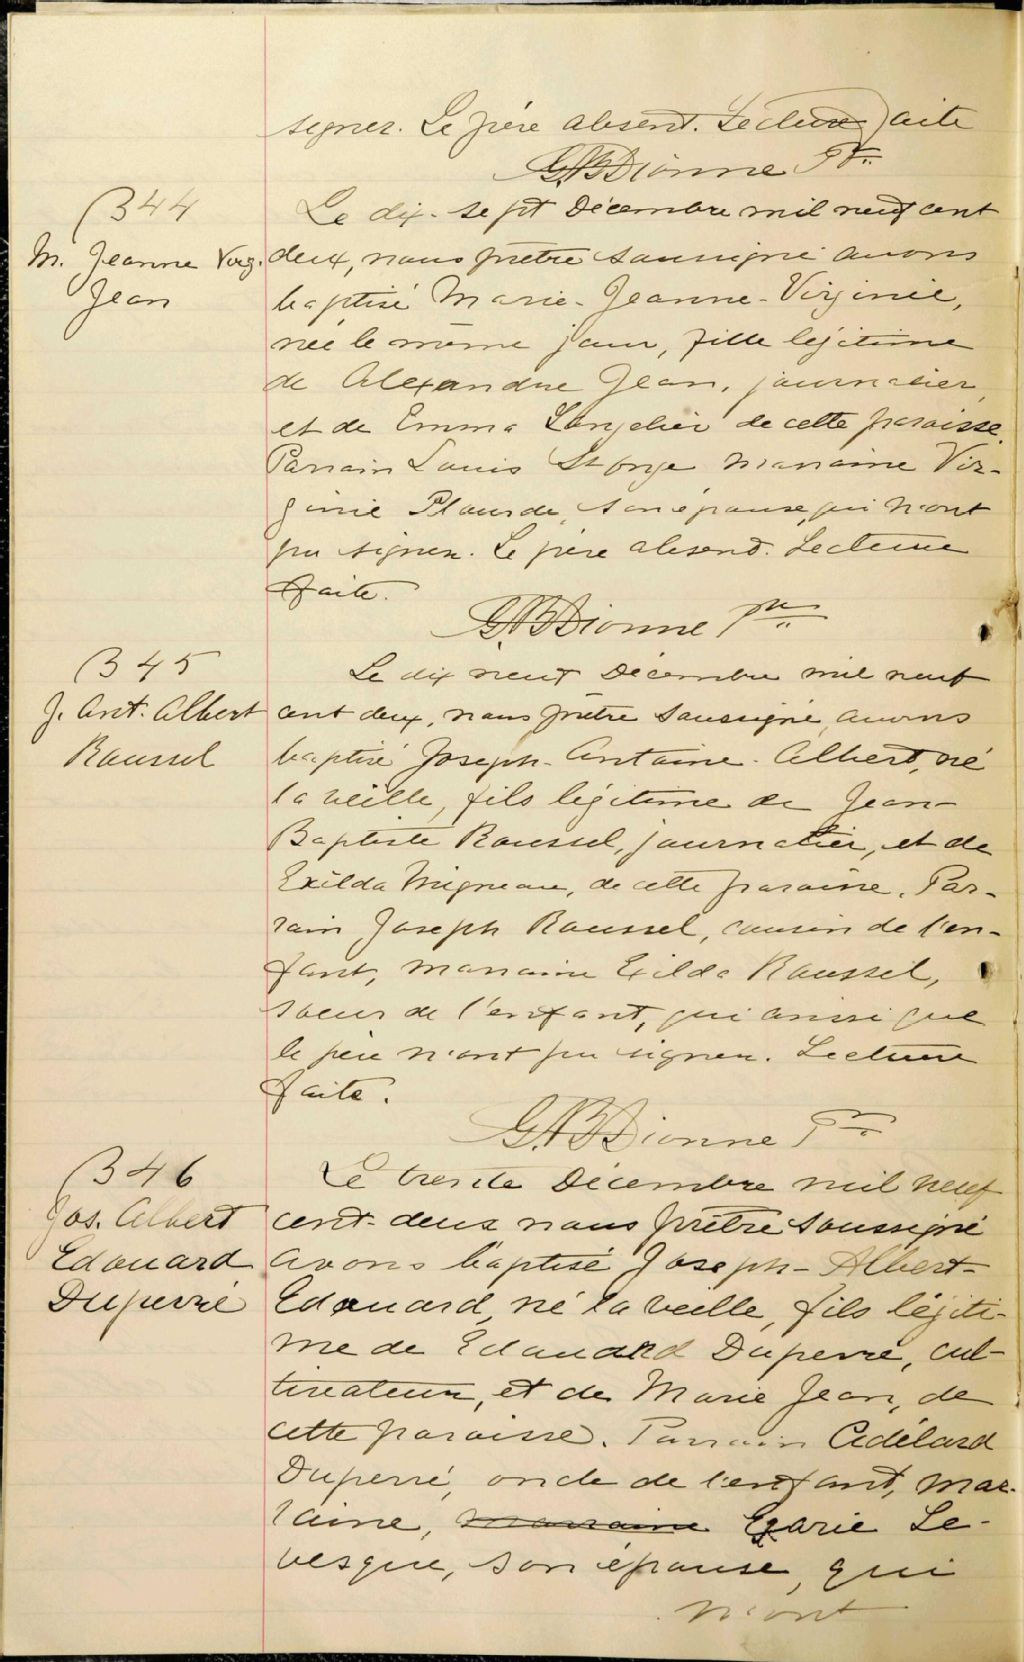 signer. Le père absent. Lecture faite
G.B Dionne Ptr.
B 44
M. Jeanne Virg.
Jean
Le dix-sept Décembre mil neuf cent
deux, nous prêtre soussigné avons
baptisé Marie-Jeanne-Virginie,
née le même jour, fille légitime
de Alexandre Jean, journalier,
et de Emma Langelier de cette paroisse.
Parrain Louis St Onge marraine Vir-
ginie Plourde, son épouse, qui n'ont
pu signer. Le père absent. Lecture
faite.
G.B Dionne Ptre
B 45
J. Ant. Albert
Roussel
Le dix neuf Décembre mil neuf
cent deux, nous prêtre soussigné, avons
baptisé Joseph-Antoine-Albert, né
la veille, fils légitime de Jean-
Baptiste Roussel, journalier, et de
Exilda Migneau, de cette paroisse. Par-
rain Joseph Roussel, cousin de l'en-
fant, marraine Exilda Roussel,
soeur de l'enfant, qui ainsi que
le père n'ont pu signer. Lecture
faite.
G.B Dionne Ptre
B 46
Jos. Albert
Edouard
Duperré
Le trente Décembre mil neuf
cent-deux nous prêtre soussigné
avons baptisé Joseph-Albert-
Edouard, né la veille, fils légiti-
me de Edouard Duperré, cul-
tivateur, et de Marie Jean, de
cette paroisse. Parrain Adélard
Duperré, oncle de l'enfant, mar-
raine, marraine Le-
vesque, son épouse, qui
n'ont